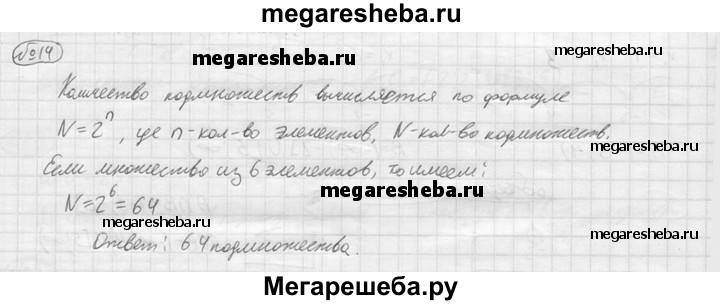 megaresheba.ru
№14
megaresheba.ru megaresheba.ru
Количество подмножеств вычисляется по формуле
N=2ⁿ, где n-кол-во элементов, N-кол-во подмножеств.
Если множество из 6 элементов, то имеем:
megaresheba.ru
N=2⁶=64
megaresheba.ru megaresheba.ru
Ответ: 64 подмножества.
Мегарешеба.ру